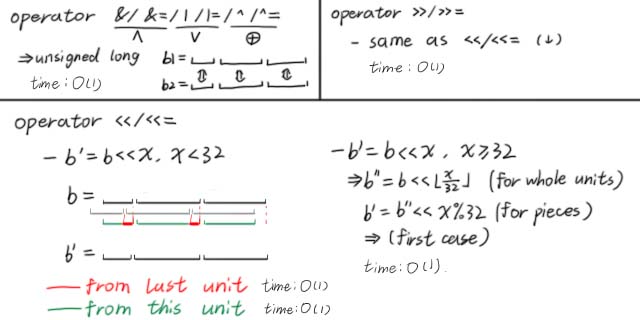 operator &/&=/|/|=/^/^=
∧ ∨ ⊕
⇒unsigned long
time: O(1)
b1=
b2=
operator >>/>>=
- same as <</<<= (↓)
time: O(1)
operator <</<<=
- b'=b<<x, x<32
b=
b'=
from last unit time: O(1)
from this unit time: O(1)
- b'=b<<x, x≥32
⇒b''=b<<⌊x/32⌋ (for whole units)
b'=b''<<x%32 (for pieces)
⇒(first case)
time: O(1).